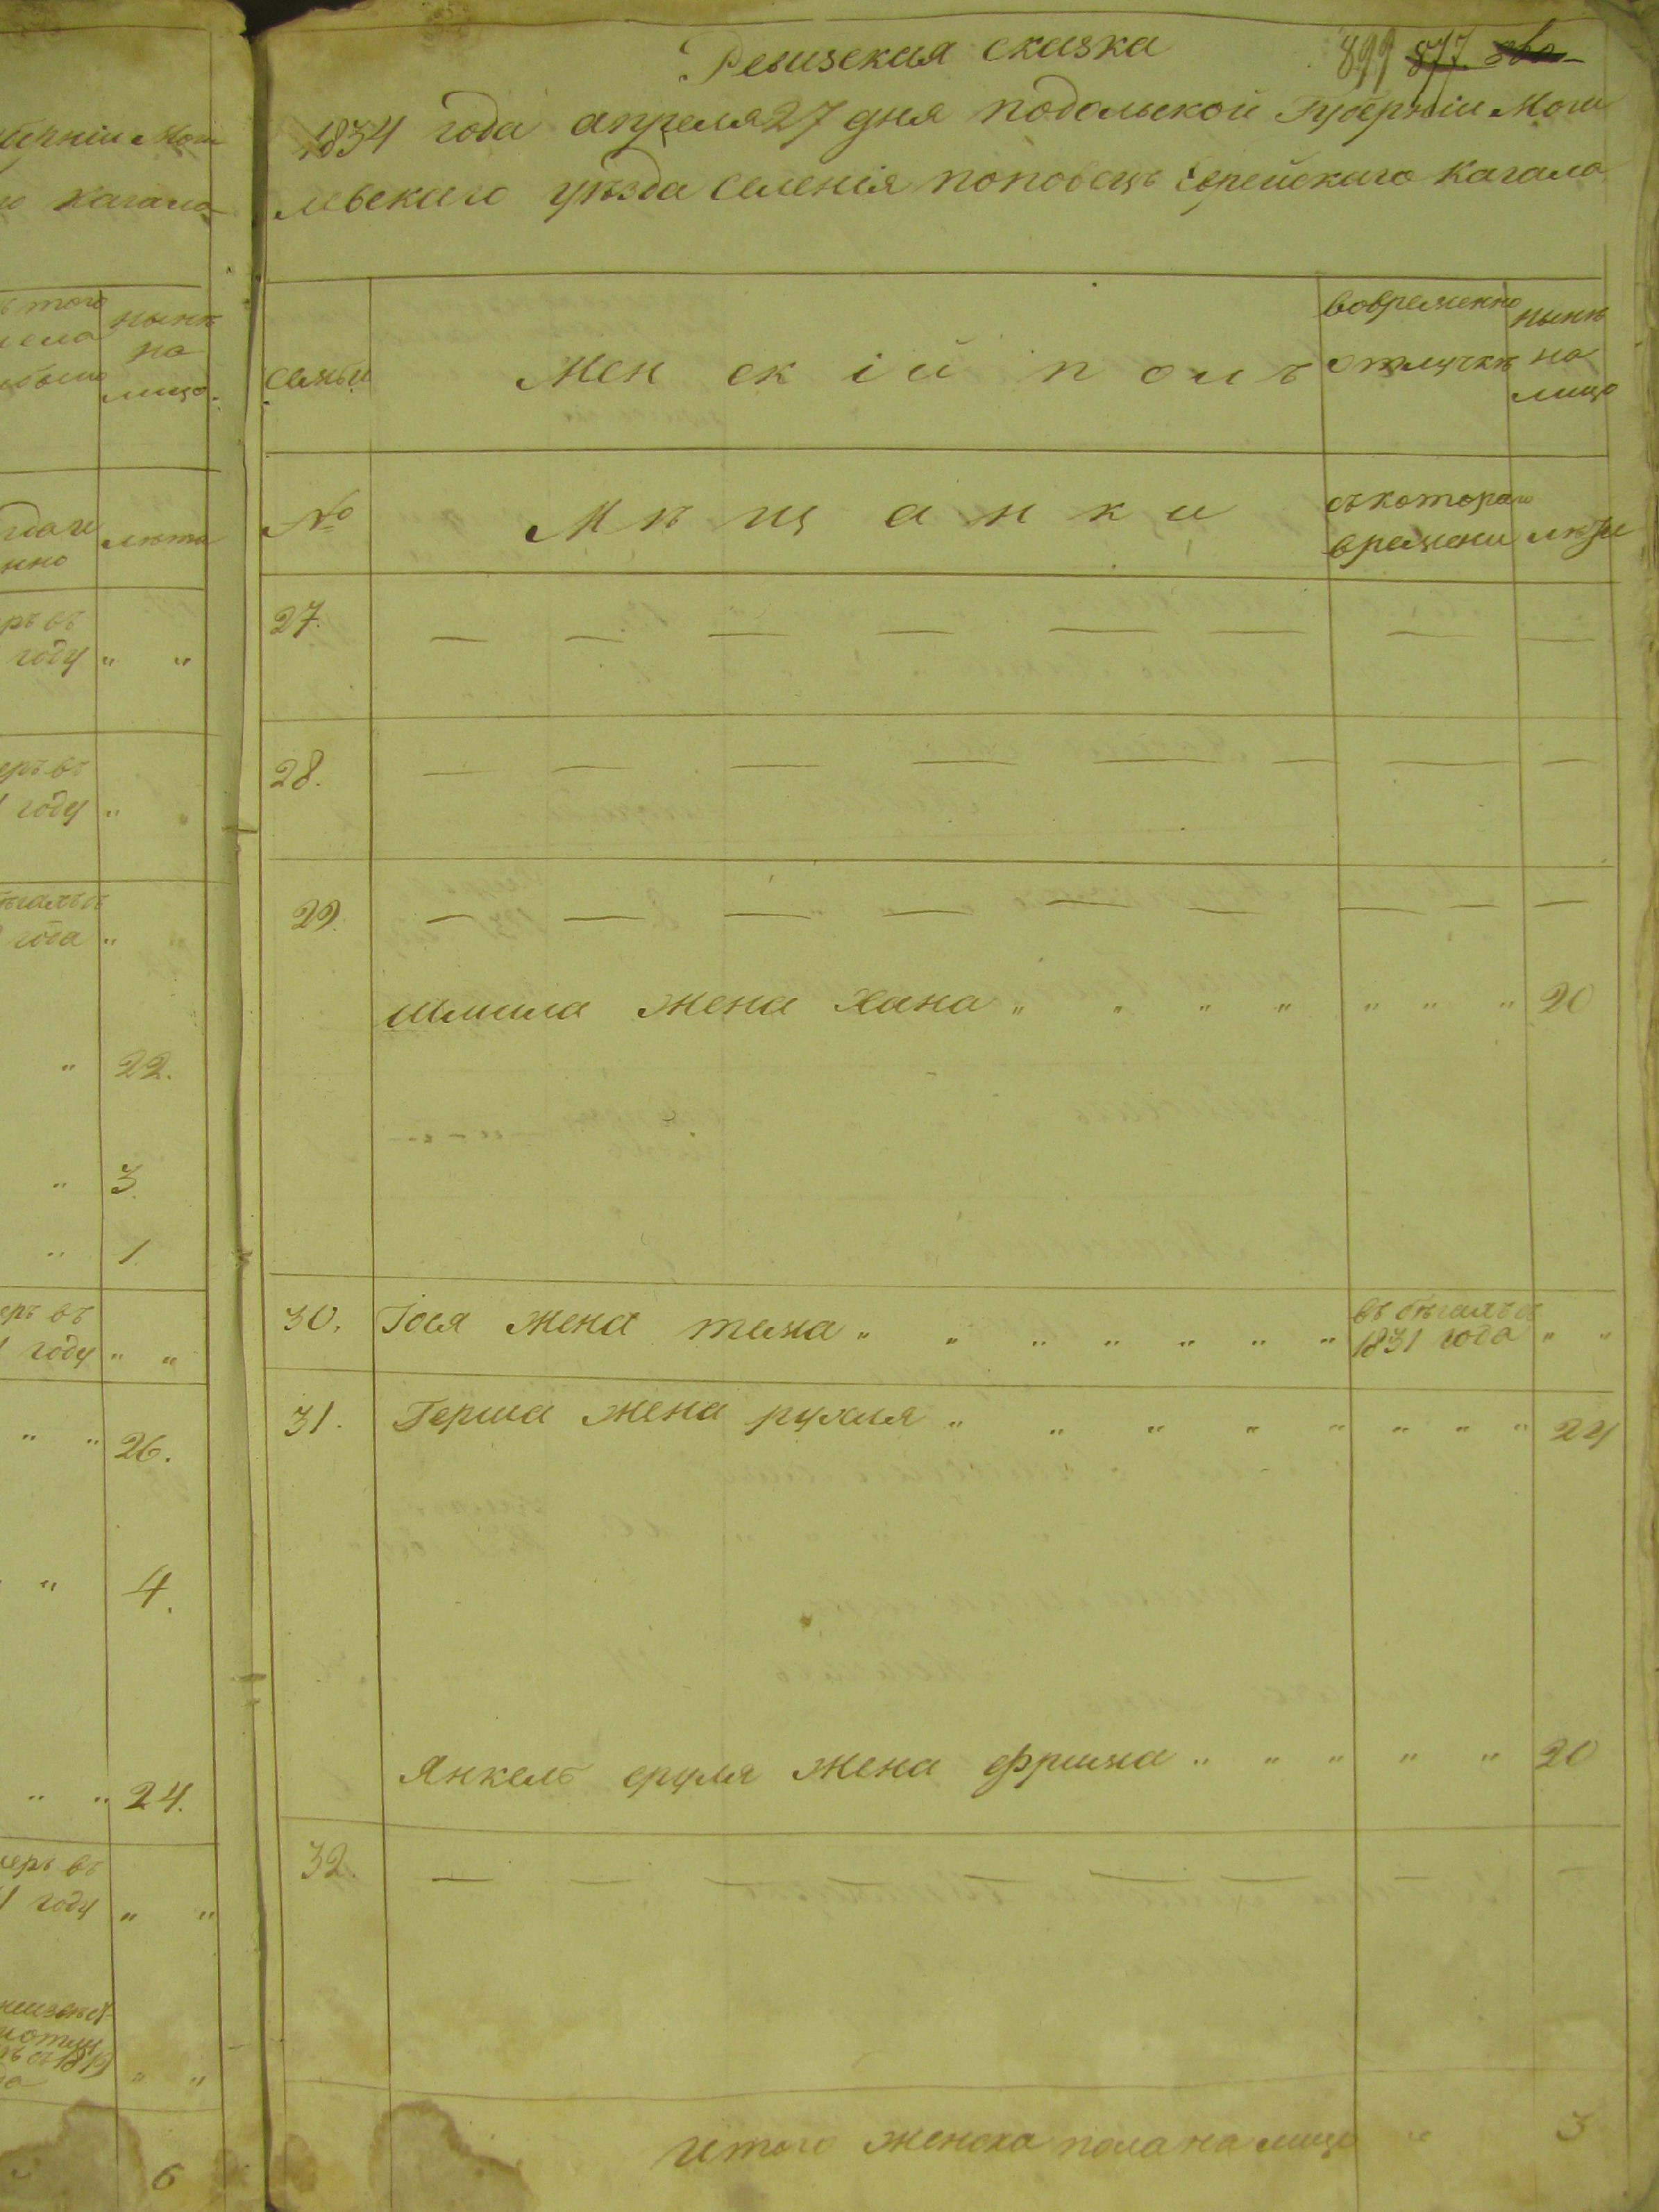 Ревизская сказка 899 877
1834 года апреля 27 дня подольской Губерніи Моги
левскаго уѣзда Селенія поповецъ Еврейскаго кагала
семьи Женскій полъ вовременно отлучкѣ нынѣ на лицо
№ Мѣщанки съ котораго времени лѣты
27. — — — — — — — —
28. — — — — — — — —
29. — — — — — — — — —
Шмила жена Хана " " " " " " " 20
30. Іося жена тема " " " " " " " въ бѣгахъ съ 1831 года " "
31. Герша жена рухля " " " " " " " " 24
Янкель сруля жена фрима " " " " " 20
32. — — — — — — —
Итого женска пола на лицо " 3
губерніи Моги
кагала
нынѣ
на
лицо.
лѣта
году " "
году "
года "
" 22.
" 3.
" 1
году " "
" " 26.
" 4.
" " 24.
году " "
" "
6